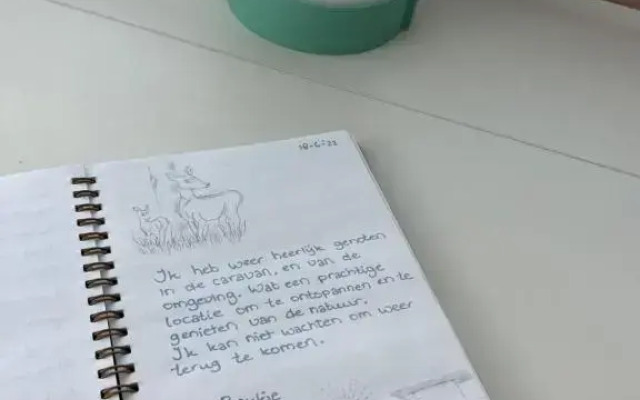 18-6-22
Ik heb weer heerlijk genoten
in de caravan, en van de
omgeving. Wat een prachtige
locatie om te ontspannen en te
genieten van de natuur.
Ik kan niet wachten om weer
terug te komen.